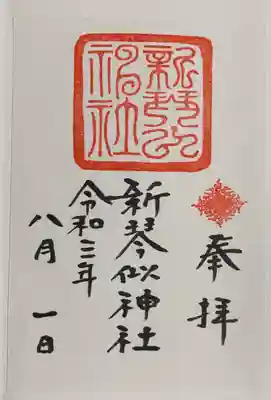 奉拝
新琴似神社
令和三年
八月一日
新琴似
神社